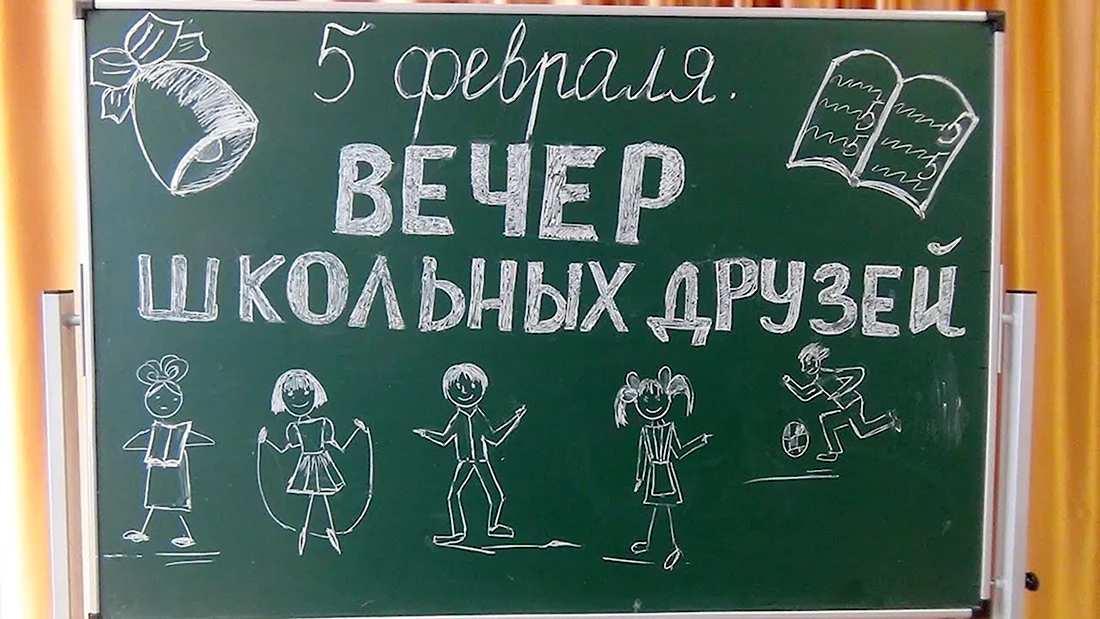 5 февраля.
ВЕЧЕР
ШКОЛЬНЫХ ДРУЗЕЙ
5 5
5 5